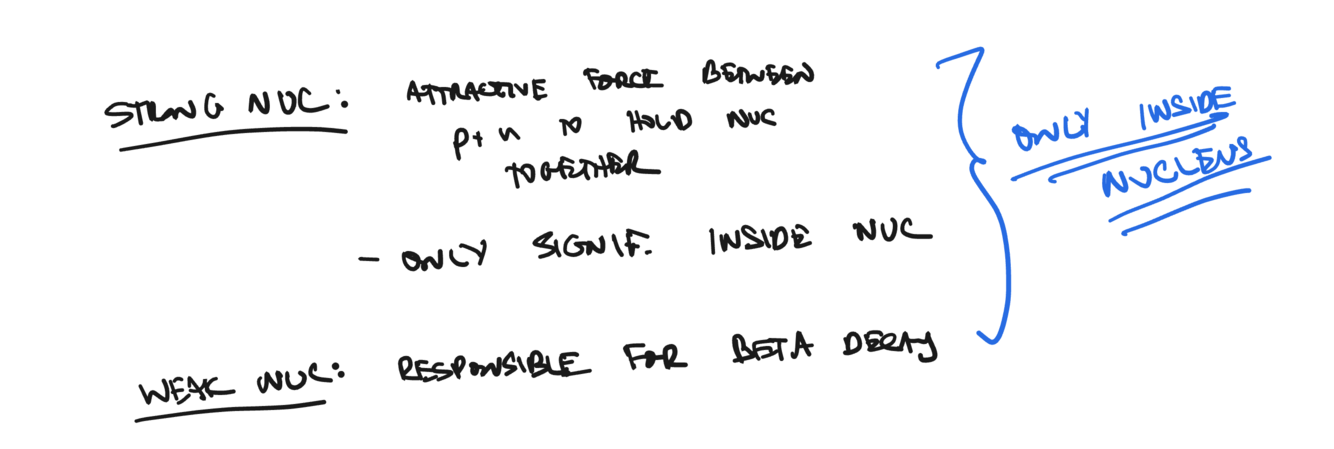 STRONG NUC: ATTRACTIVE FORCE BETWEEN
p + n TO HOLD NUC
TOGETHER
- ONLY SIGNIF. INSIDE NUC
WEAK NUC: RESPONSIBLE FOR BETA DECAY
ONLY INSIDE
NUCLEUS